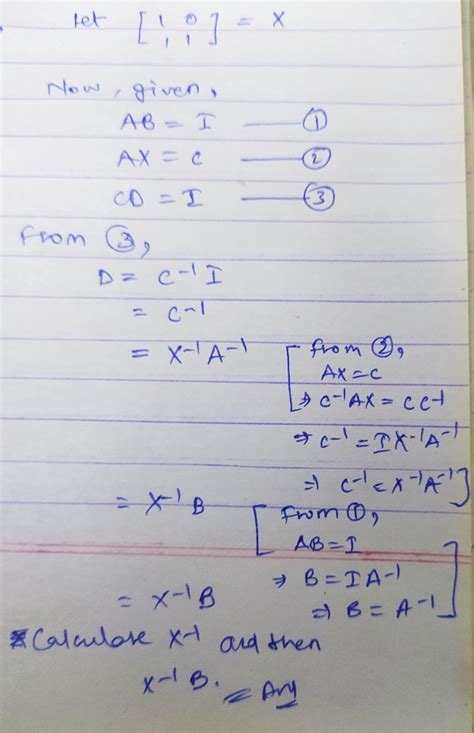 Let [1 0
1 1] = X
Now, given,
AB = I — ①
AX = C — ②
CD = I — ③
From ③,
D = C⁻¹ I
= C⁻¹
= X⁻¹A⁻¹ [from ②,
AX = C
⇒ C⁻¹AX = CC⁻¹
⇒ C⁻¹ = IX⁻¹A⁻¹
⇒ C⁻¹ = X⁻¹A⁻¹]
= X⁻¹B [From ①,
AB = I
⇒ B = IA⁻¹
= X⁻¹B ⇒ B = A⁻¹]
Calculate X⁻¹ and then
X⁻¹B. = Ans